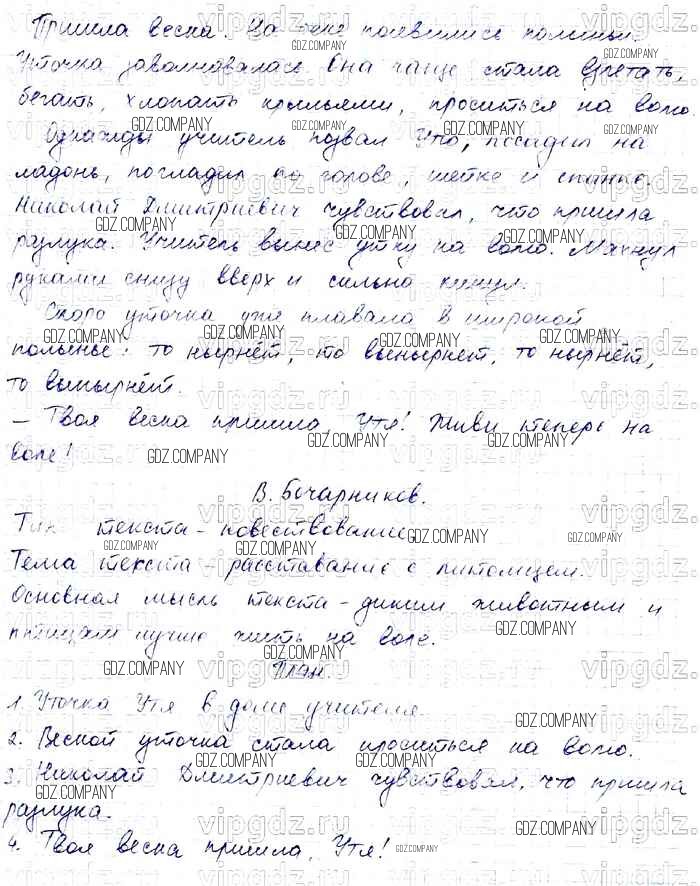 Пришла весна. На реке появились полыньи.
Уточка заволновалась. Она чаще стала взлетать,
бегать, хлопать крыльями, проситься на волю.
Однажды учитель позвал Утю, посадил на
ладонь, погладил по голове, шейке и спинке.
Николай Дмитриевич чувствовал, что пришла
разлука. Учитель вынес утку на волю. Махнул
руками снизу вверх и сильно кинул.
Скоро уточка уже плавала в широкой
полынье: то нырнёт, то вынырнет, то нырнёт,
то вынырнет.
– Твоя весна пришла, Утя! Живи теперь на
воле!
В. Бочарников.
Тип текста – повествование.
Тема текста – расставание с питомцем.
Основная мысль текста – диким животным и
птицам лучше жить на воле.
План.
1. Уточка Утя в доме учителя.
2. Весной уточка стала проситься на волю.
3. Николай Дмитриевич чувствовал, что пришла
разлука.
4. Твоя весна пришла, Утя!